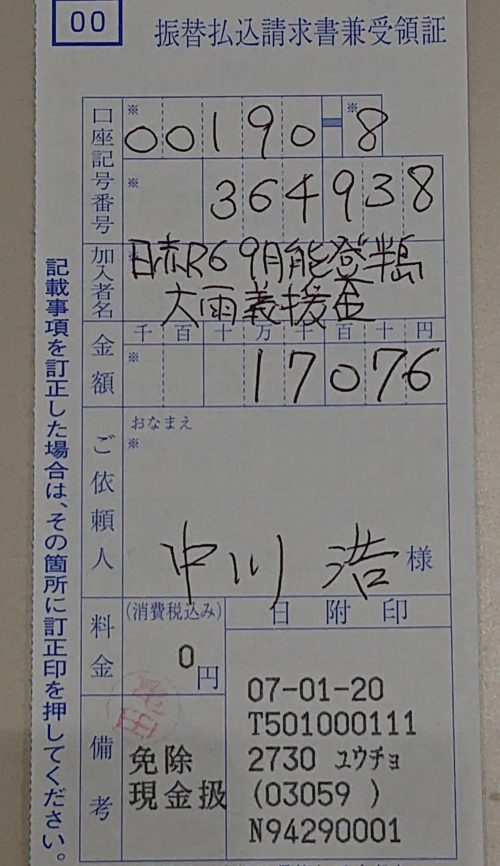 00
振替払込請求書兼受領証
口座記号番号
※
00190-8
※
※
364938
加入者名
日赤R6 9月能登半島
大雨義援金
金額
千百十万千百十円
※
17076
ご依頼人
おなまえ
※
中川 浩 様
料金
(消費税込み)
0円
備考
免除
現金扱
日附印
07-01-20
T501000111
2730 ユウチョ
(03059 )
N94290001
記載事項を訂正した場合は、その箇所に訂正印を押してください。